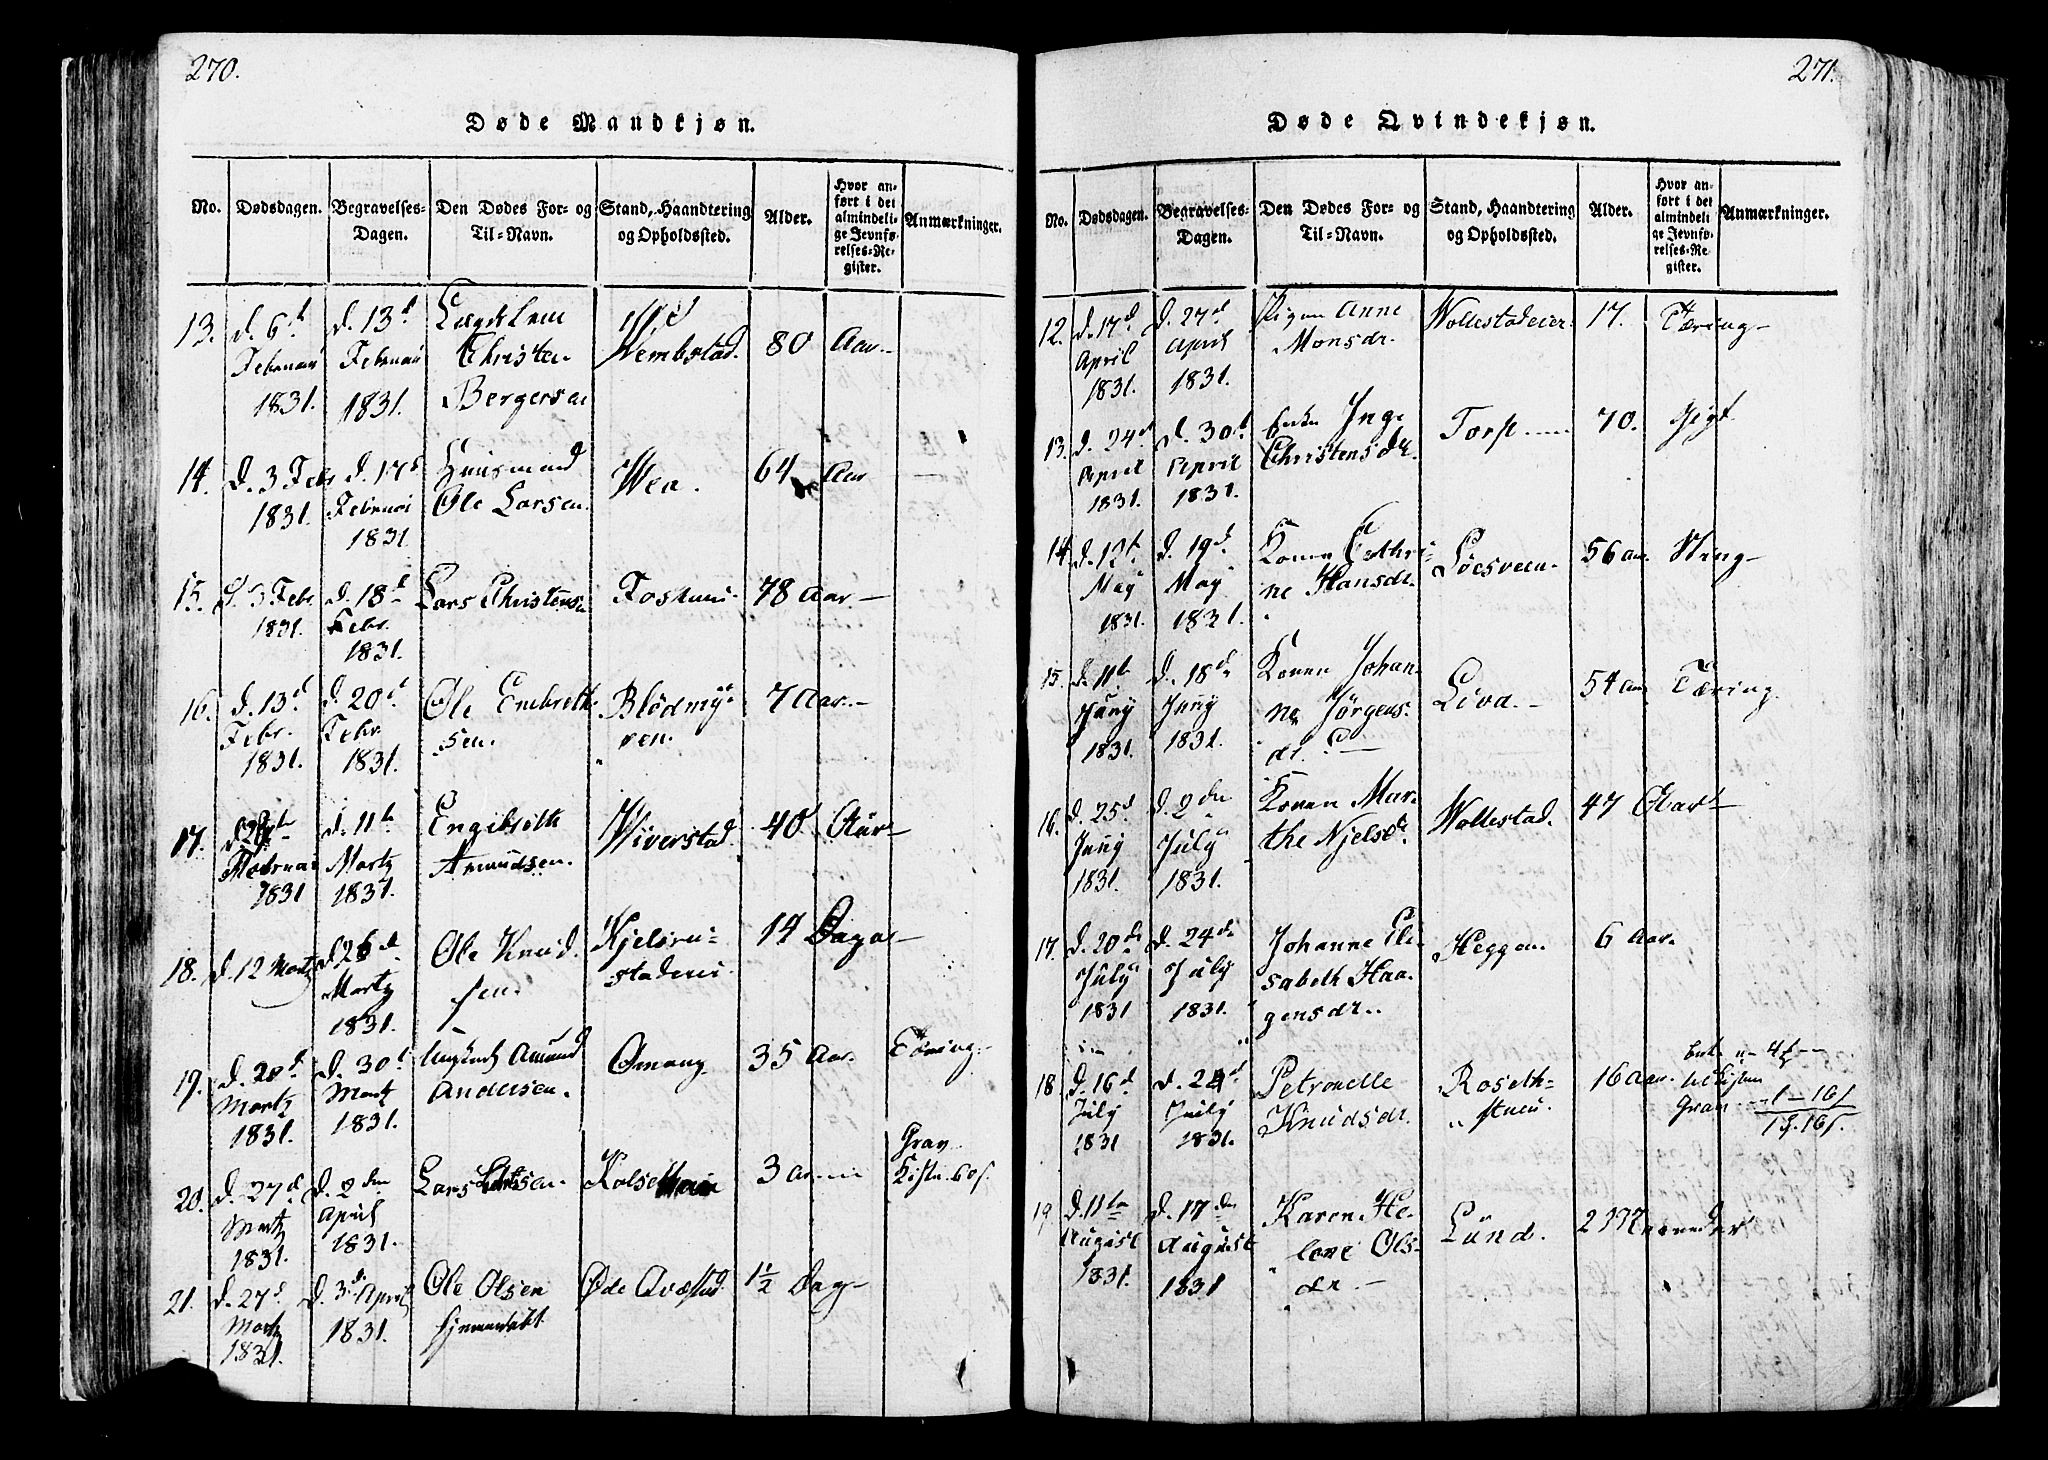 270.
Døde Mandkjøn.
No. Dødsdagen. Begravelses-Dagen. Den Dødes For- og Til-Navn. Stand, Haandtering og Opholdssted. Alder. Hvor anført i det almindelige Jevnførelses-Register. Anmærkninger.
13. d. 6t Februari 1831. d. 13d Februari 1831. Lægdslem Christen Bergersen Wembstad. 80 Aar.
14. d. 3 Feb 1831. d. 17d Februari 1831 Huusmand Ole Larsen. Wea. 64 Aar
15. d. 3 Febr 1831. d. 18d Febr. 1831. Lars Christens. 78 Aar.
16. d. 13d Febr. 1831. d. 20d Febr. 1831. Ole Embreth- sen. Blödmy- ren. 7 Aar.
17. Februari 1831 d. 11te Martz 1831. Engibreth Amundsen. Wiverstad. 40 Aar
18. d. 12 Martz d. 26d Martz 1831. Ole Knud- sen. 14 Dage
19. d. 20d Martz 1831. d. 30d Martz 1831. Amund Andersen. Omang. 35 Aar. Tæring.
20. d. 27d Martz 1831. d. 2den April 1831. Lars 3 Aar Grav Kiste 60s.
21. d. 27d Martz 1831. d. 3d April 1831. Ole Olsen hjemmedøbt Øde Qvæstad. 1½ Dag
271.
Døde Qvindekjøn.
No. Dødsdagen. Begravelses-Dagen. Den Dødes For- og Til-Navn. Stand, Haandtering og Opholdssted. Alder. Hvor anført i det almindelige Jevnførelses-Register. Anmærkninger.
12. d. 17d April 1831. d. 27d April 1831. Pigen Anne Monsdr. Wollestadeier. 17. Tæring
13. d. 24d April 1831. d. 30d April 1831. Enke Inge Christensdr. Torp. 70. Gigt
14. d. 12t May 1831. d. 19d May 1831. Konen Cathri- ne Hansdr. Löesveen. 56 aar. Sting
15. d. 11te Juny 1831. d. 18de Juny 1831. Konen Johan- ne Jörgens- dr. Lövd. 54 aar Tæring.
16. d. 25d Juny 1831. d. 2den July 1831. Konen Mar- the Njelsdr. Wollestad. 47 Aar
17. d. 20de July 1831 d. 24de July 1831. Johanne Eli- sabeth Haa- gensdr. Heggen. 6 Aar.
18. d. 16d July 1831 d. 24d July 1831. Petronelle Knudsdr. Roseth- stuen. 16 Aar. Grav 1 - 16s
19 d. 11te August 1831. d. 17den August 1831 Karen He- lene Ols- dr. Lund. 2 Maaneder